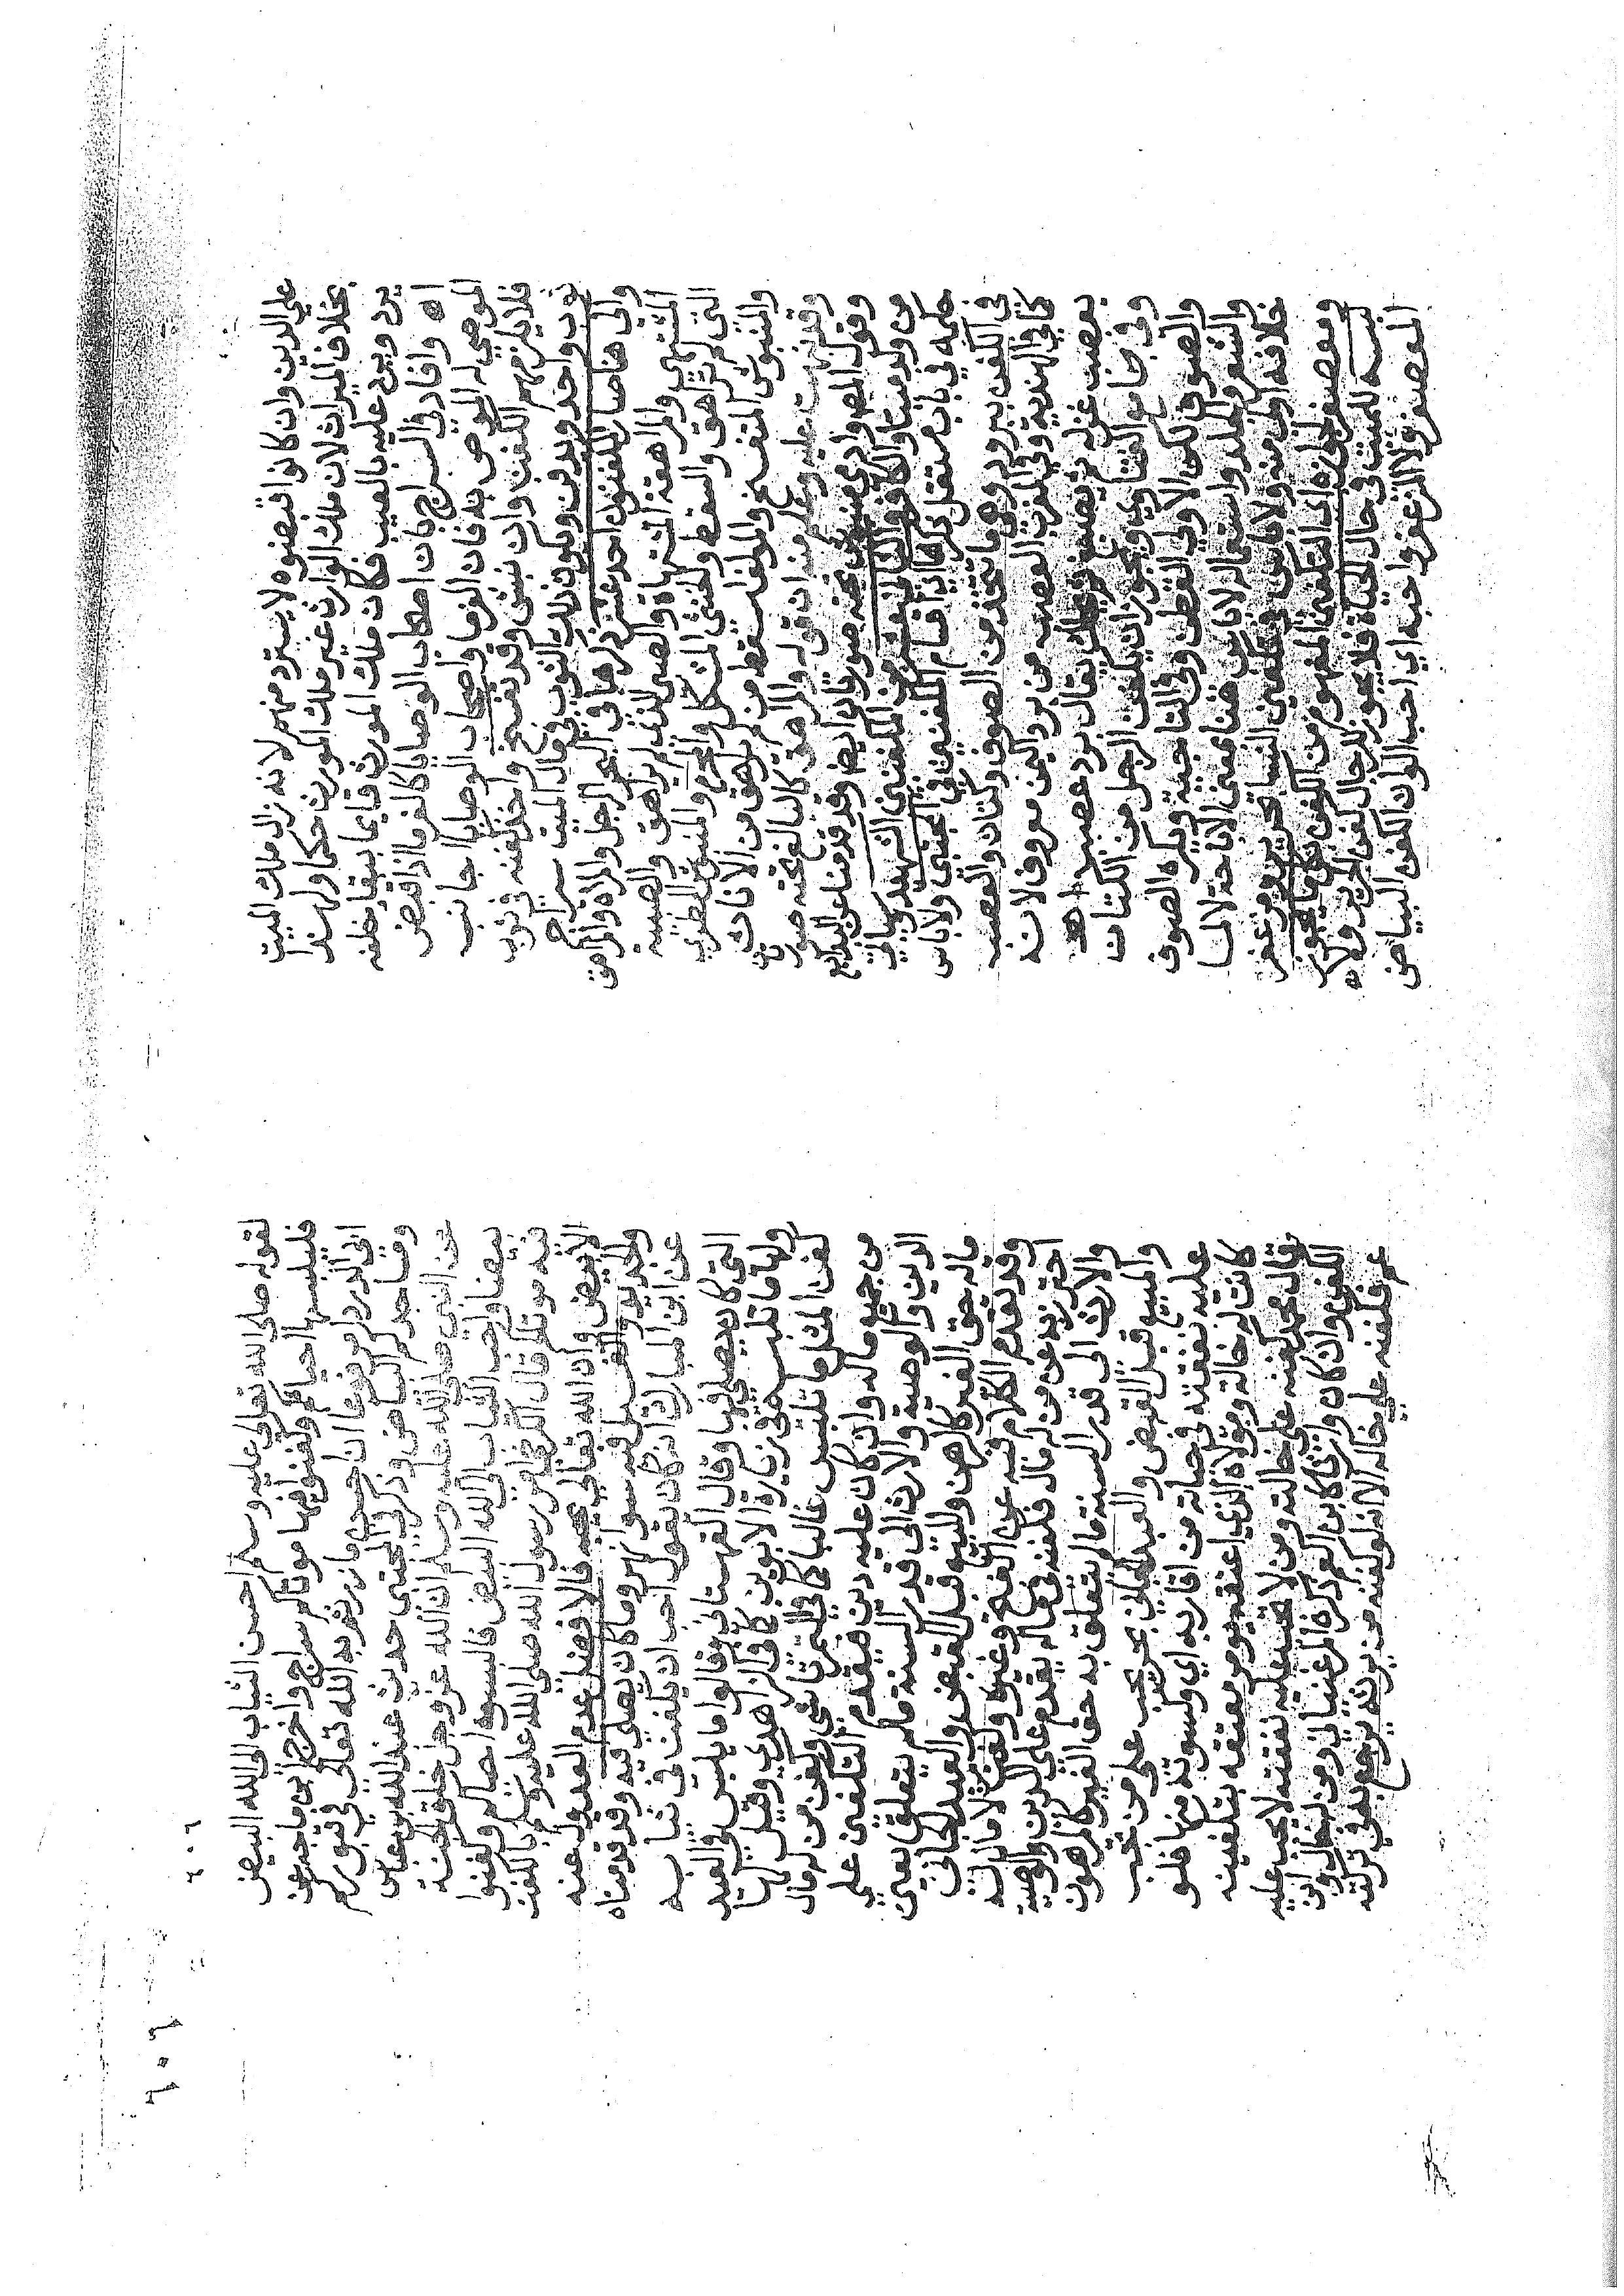 علي الدين وان كانوا اقتضوه لا يسترد منهم لانه زال ملك الميت
بخلاف الميراث لان ملك الوارث غير ملك المورث حكما ولهذا
يرد ويرد عليه بالعيب فكان ملك المورث قايما ببقاء خلفه
اه وافاد في السراج بان اصحاب الوصايا كالغرما اذا قبض
الموصي له الموصى به فان الغرما واصحاب الوصايا اجانب
فلا يلزمهم الكفن وان نبش وقد تفسخ واخذ كفنه في ثوب
ثوب واحد ويدفن ويكون ذلك الثوب في مال الميت سراج
والى هنا صار المكفنون احد عشر ذكرها في البحر الرجل والمراة والمراهق
المشتهي والمراهقة المشتهاة والصبي الذي لم يراهق والصبية
التي لم تراهق والسقط والخنثى المشكل والمحرم والمنبوش الطري
والمنبوش المتفسخ
وقد نهت عليه وعلم منه ان قوله والمراهق كالبالغ تحته صور
وقول المص وادمي منبوش تحته صورتان ايض وقد قدمنا عن البدايع
من ولد ميتا والكافر والثالث عشر من المكفنين الشهيد وسياتي
حكمه في باب مستقل ذكر هذه اقسام المكفنين في المجتبى ولا باس
في الكفن ببرود وهي ما تتخذ من الصوف وكتان والقصب
كما في الهندية وفي المغرب العصب من برود اليمن معروف لانه
يعصب غزله ثم يصبغ ثم يحاك يقال برد عصب اه
وفي جامع الفتاوي ويجوز ان يكفن الرجل من الكتان
والصوف لكن الاولى القطن وفي التاجية ويكره الصوف
والشعر والجلد واستعمال لا باس هنا بمعنى الاباحة لا لما
خلافه اولى منه ولا باس في تكفين النسا بحرير ومزعفر
ومعصفر لجوازه اي التكفين المفهوم من الكفن بكل ما يجوز
لبسه للميت في حال الحياة فلا يجوز للرجال كفن الحرير ولا
المعصفر ولا المزعفر واحبه اي احب الوان الكفن البياض
لقوله صلى الله تعالى عليه وسلم احسن الثياب الى الله البيض
فليلبسها احياكم وكفنوا فيها موتاكم سراج واخرج ابن ماجه عن
ابي الدرداء مرفوعا ان احسن ما زرتم به الله تعالى في قبوركم
ومساجدكم البياض وذكر في المجتبى حديث عبد الله بن عباس
عن النبي صلى الله عليه وسلم ان الله عز وجل خلق الجنة
بيضا واحب الثياب الى الله البيض فالبسوه احياكم وكفنوا
فيه موتاكم قال الكرخي رسول الله صلى الله عليه وسلم بالكفن
الابيض وان الله تعالى يحبه فالافضل عدم العدول عنه
والجديد والغسيل فيه سوا نهر وما كان يصلي فيه وقد قدمناه
عن ابن المبارك انه كان يقول احب ان يكفن في ثيابه
التي كان يصلي فيها وقال القهستاني وقالوا ما يلبس في العيد
ولها ما تلبس في زيارة الابوين كما في الزاهدي وقيل لها
كفن المثل ما تلبس غالبا كما في التمرتاشي وكفن من له مال
من جميع ماله وان كان عليه دين فيقدم التكفين على
الدين والوصية والارث الى قدر السنة ما لم يتعلق بعين
ماله حق الغير كالرهن والمبيع قبل القبض والعبد الجاني
وقد تقدم الكلام فيه عن الفتح وغيره وكفن من لا مال له
احترز به عمن له مال فكفنه في ماله يقدم على الدين والوصية
والارث الى قدر السنة ما لم يتعلق به حق الغير كالمرهون
والمبيع قبل القبض والعبد الجاني بحر يجب على من تجب
عليه نفقته في حياته من اقاربه اي وكسوته منها فلو
كانت له خالة ومولاه الذي اعتقه يومر معتقه بتكفينه
وقال محمد كفنه على خالته ومن لا تجب عليه نفقته لا يجب عليه
الكفن وان كان وارثا كابن العم ذكره المرغيناني ومن
عم فكفنه علي خاله الا انه لو كفنه من يرثه يرجع به في تركته